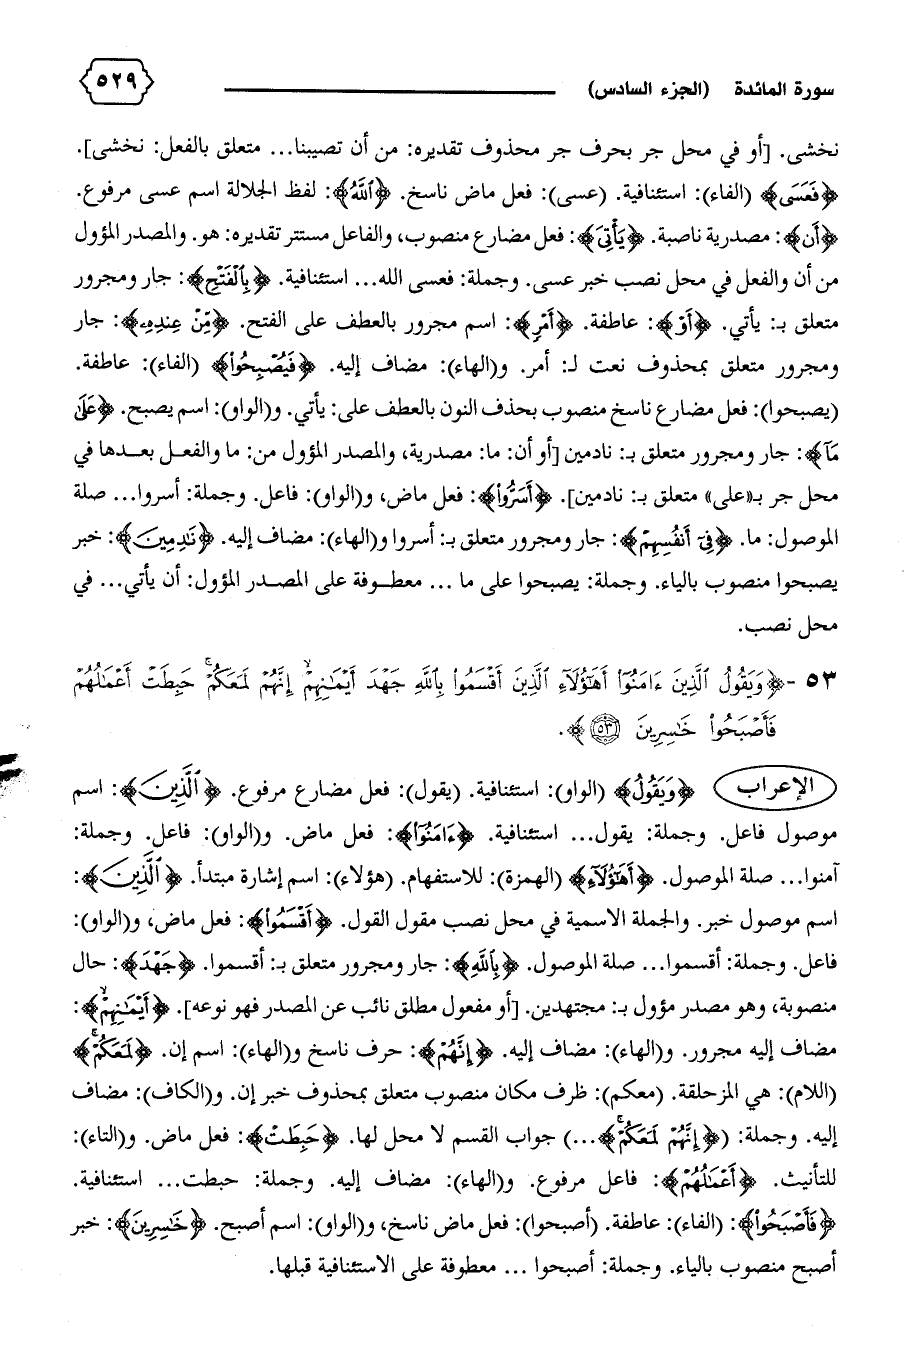 سورة المائدة (الجزء السادس) ٥٢٩
نخشى. [أو في محل جر بحرف جر محذوف تقديره: من أن تصيبنا... متعلق بالفعل: نخشى].
﴿فَعَسَى﴾ (الفاء): استئنافية. (عسى): فعل ماض ناسخ. ﴿ٱللَّهُ﴾: لفظ الجلالة اسم عسى مرفوع.
﴿أَن﴾: مصدرية ناصبة. ﴿يَأْتِىَ﴾: فعل مضارع منصوب، والفاعل مستتر تقديره: هو. والمصدر المؤول
من أن والفعل في محل نصب خبر عسى. وجملة: فعسى الله... استئنافية. ﴿بِٱلْفَتْحِ﴾: جار ومجرور
متعلق بـ: يأتي. ﴿أَوْ﴾: عاطفة. ﴿أَمْرٍ﴾: اسم مجرور بالعطف على الفتح. ﴿مِّنْ عِندِهِۦ﴾: جار
ومجرور متعلق بمحذوف نعت لـ: أمر. و(الهاء): مضاف إليه. ﴿فَيُصْبِحُوا۟﴾ (الفاء): عاطفة.
(يصبحوا): فعل مضارع ناسخ منصوب بحذف النون بالعطف على: يأتي. و(الواو): اسم يصبح. ﴿عَلَىٰ
مَآ﴾: جار ومجرور متعلق بـ: نادمين [أو أن: ما: مصدرية، والمصدر المؤول من: ما والفعل بعدها في
محل جر بـ«على» متعلق بـ: نادمين]. ﴿أَسَرُّوا۟﴾: فعل ماض، و(الواو): فاعل. وجملة: أسروا... صلة
الموصول: ما. ﴿فِىٓ أَنفُسِهِمْ﴾: جار ومجرور متعلق بـ: أسروا و(الهاء): مضاف إليه. ﴿نَـٰدِمِينَ﴾: خبر
يصبحوا منصوب بالياء. وجملة: يصبحوا على ما ... معطوفة على المصدر المؤول: أن يأتي... في
محل نصب.
٥٣ -﴿وَيَقُولُ ٱلَّذِينَ ءَامَنُوٓا۟ أَهَـٰٓؤُلَآءِ ٱلَّذِينَ أَقْسَمُوا۟ بِٱللَّهِ جَهْدَ أَيْمَـٰنِهِمْ ۙ إِنَّهُمْ لَمَعَكُمْ ۚ حَبِطَتْ أَعْمَـٰلُهُمْ
فَأَصْبَحُوا۟ خَـٰسِرِينَ ۝٥٣﴾.
الإعراب ﴿وَيَقُولُ﴾ (الواو): استئنافية. (يقول): فعل مضارع مرفوع. ﴿ٱلَّذِينَ﴾: اسم
موصول فاعل. وجملة: يقول... استئنافية. ﴿ءَامَنُوٓا۟﴾: فعل ماض. و(الواو): فاعل. وجملة:
آمنوا... صلة الموصول. ﴿أَهَـٰٓؤُلَآءِ﴾ (الهمزة): للاستفهام. (هؤلاء): اسم إشارة مبتدأ. ﴿ٱلَّذِينَ﴾:
اسم موصول خبر. والجملة الاسمية في محل نصب مقول القول. ﴿أَقْسَمُوا۟﴾: فعل ماض، و(الواو):
فاعل. وجملة: أقسموا... صلة الموصول. ﴿بِٱللَّهِ﴾: جار ومجرور متعلق بـ: أقسموا. ﴿جَهْدَ﴾: حال
منصوبة، وهو مصدر مؤول بـ: مجتهدين. [أو مفعول مطلق نائب عن المصدر فهو نوعه]. ﴿أَيْمَـٰنِهِمْ ۙ﴾:
مضاف إليه مجرور. و(الهاء): مضاف إليه. ﴿إِنَّهُمْ﴾: حرف ناسخ و(الهاء): اسم إن. ﴿لَمَعَكُمْ ۚ﴾
(اللام): هي المزحلقة. (معكم): ظرف مكان منصوب متعلق بمحذوف خبر إن. و(الكاف): مضاف
إليه. وجملة: (﴿إِنَّهُمْ لَمَعَكُمْ ۚ﴾...) جواب القسم لا محل لها. ﴿حَبِطَتْ﴾: فعل ماض. و(التاء):
للتأنيث. ﴿أَعْمَـٰلُهُمْ﴾: فاعل مرفوع. و(الهاء): مضاف إليه. وجملة: حبطت... استئنافية.
﴿فَأَصْبَحُوا۟﴾: (الفاء): عاطفة. (أصبحوا): فعل ماض ناسخ، و(الواو): اسم أصبح. ﴿خَـٰسِرِينَ﴾: خبر
أصبح منصوب بالياء. وجملة: أصبحوا ... معطوفة على الاستئنافية قبلها.